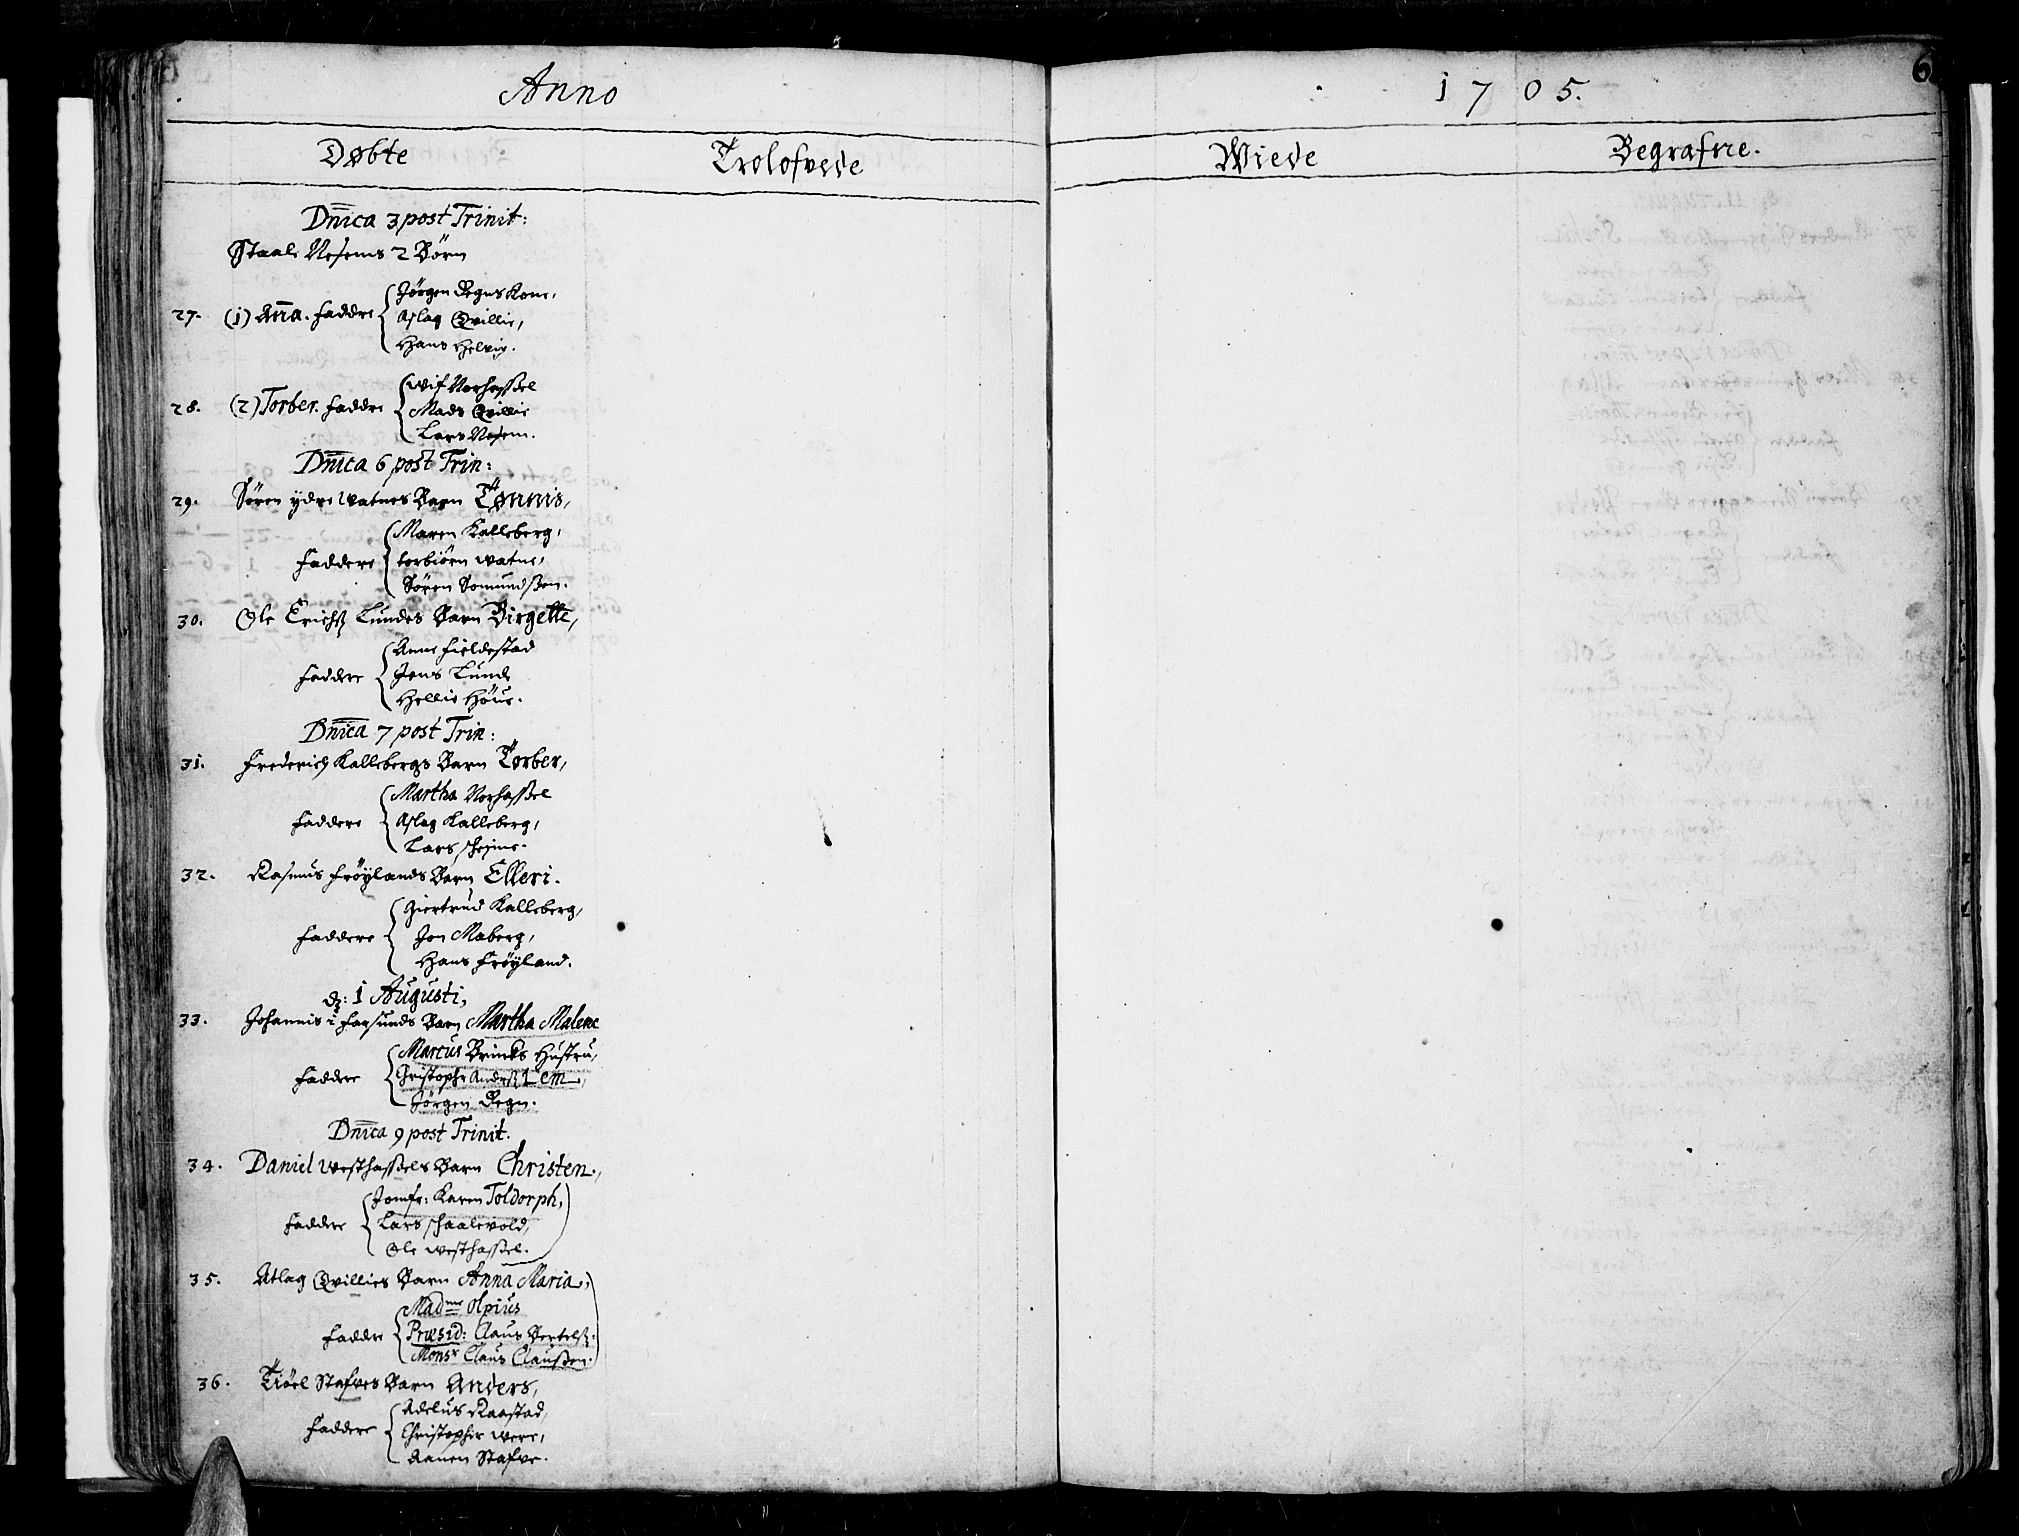 Anno
1705.
6
Døbte
Trolofvede
Wiede
Begrafne.
Dn̄ica 3 post Trinit:
Staale Nesems 2 Börn
27. (1) An̄a. faddre
Jörgen Degns Kone,
Aslag Qvillie,
Hans Helvig.
28. (2) Torber. faddre
Wif Norhassel
Mads Qvillie
Lars Nesem.
Dn̄ica 6 post Trin:
29. Sören ydre Watnes Barn Tønnis,
faddere
Maren Kalleberg,
torbiörn watne,
Sören Somundsßen.
30. Ole Erichß Lundes Barn Birgette,
faddere
Anne fieldestad
Jens Lunde
Hellie Höue.
Dn̄ica 7 post Trin:
31. Frederich Kallebergs Barn Torber,
faddere
Martha Norhassel
Aslag Kalleberg,
Lars skeime.
32. Rasmus fröylands Barn Elleri.
faddere
Giertrud Kalleberg,
Jon Maberg,
Hans fröyland.
d: 1 Augusti,
33. Johannis i farsunds Barn Martha Malene
faddere
Marcus Brincks Hustru,
Christopher Anderß Lem,
Jörgen Degn.
Dn̄ica 9 post Trinit.
34. Daniel Westhassels Barn Christen.,
faddere
Jomfr: Karen Toldorph,
Lars skaalevold,
Ole Westhassel.
35. Atlag Qvillies Barn Anna Maria,
faddre
Madme Olpius
Præsid: Claus Bertelß.
Monsr Claus Claußen.
36. Tiöel Stafves Barn Anders,
faddere
Adelus Raastad,
Christopher were,
Aanen Stafve.